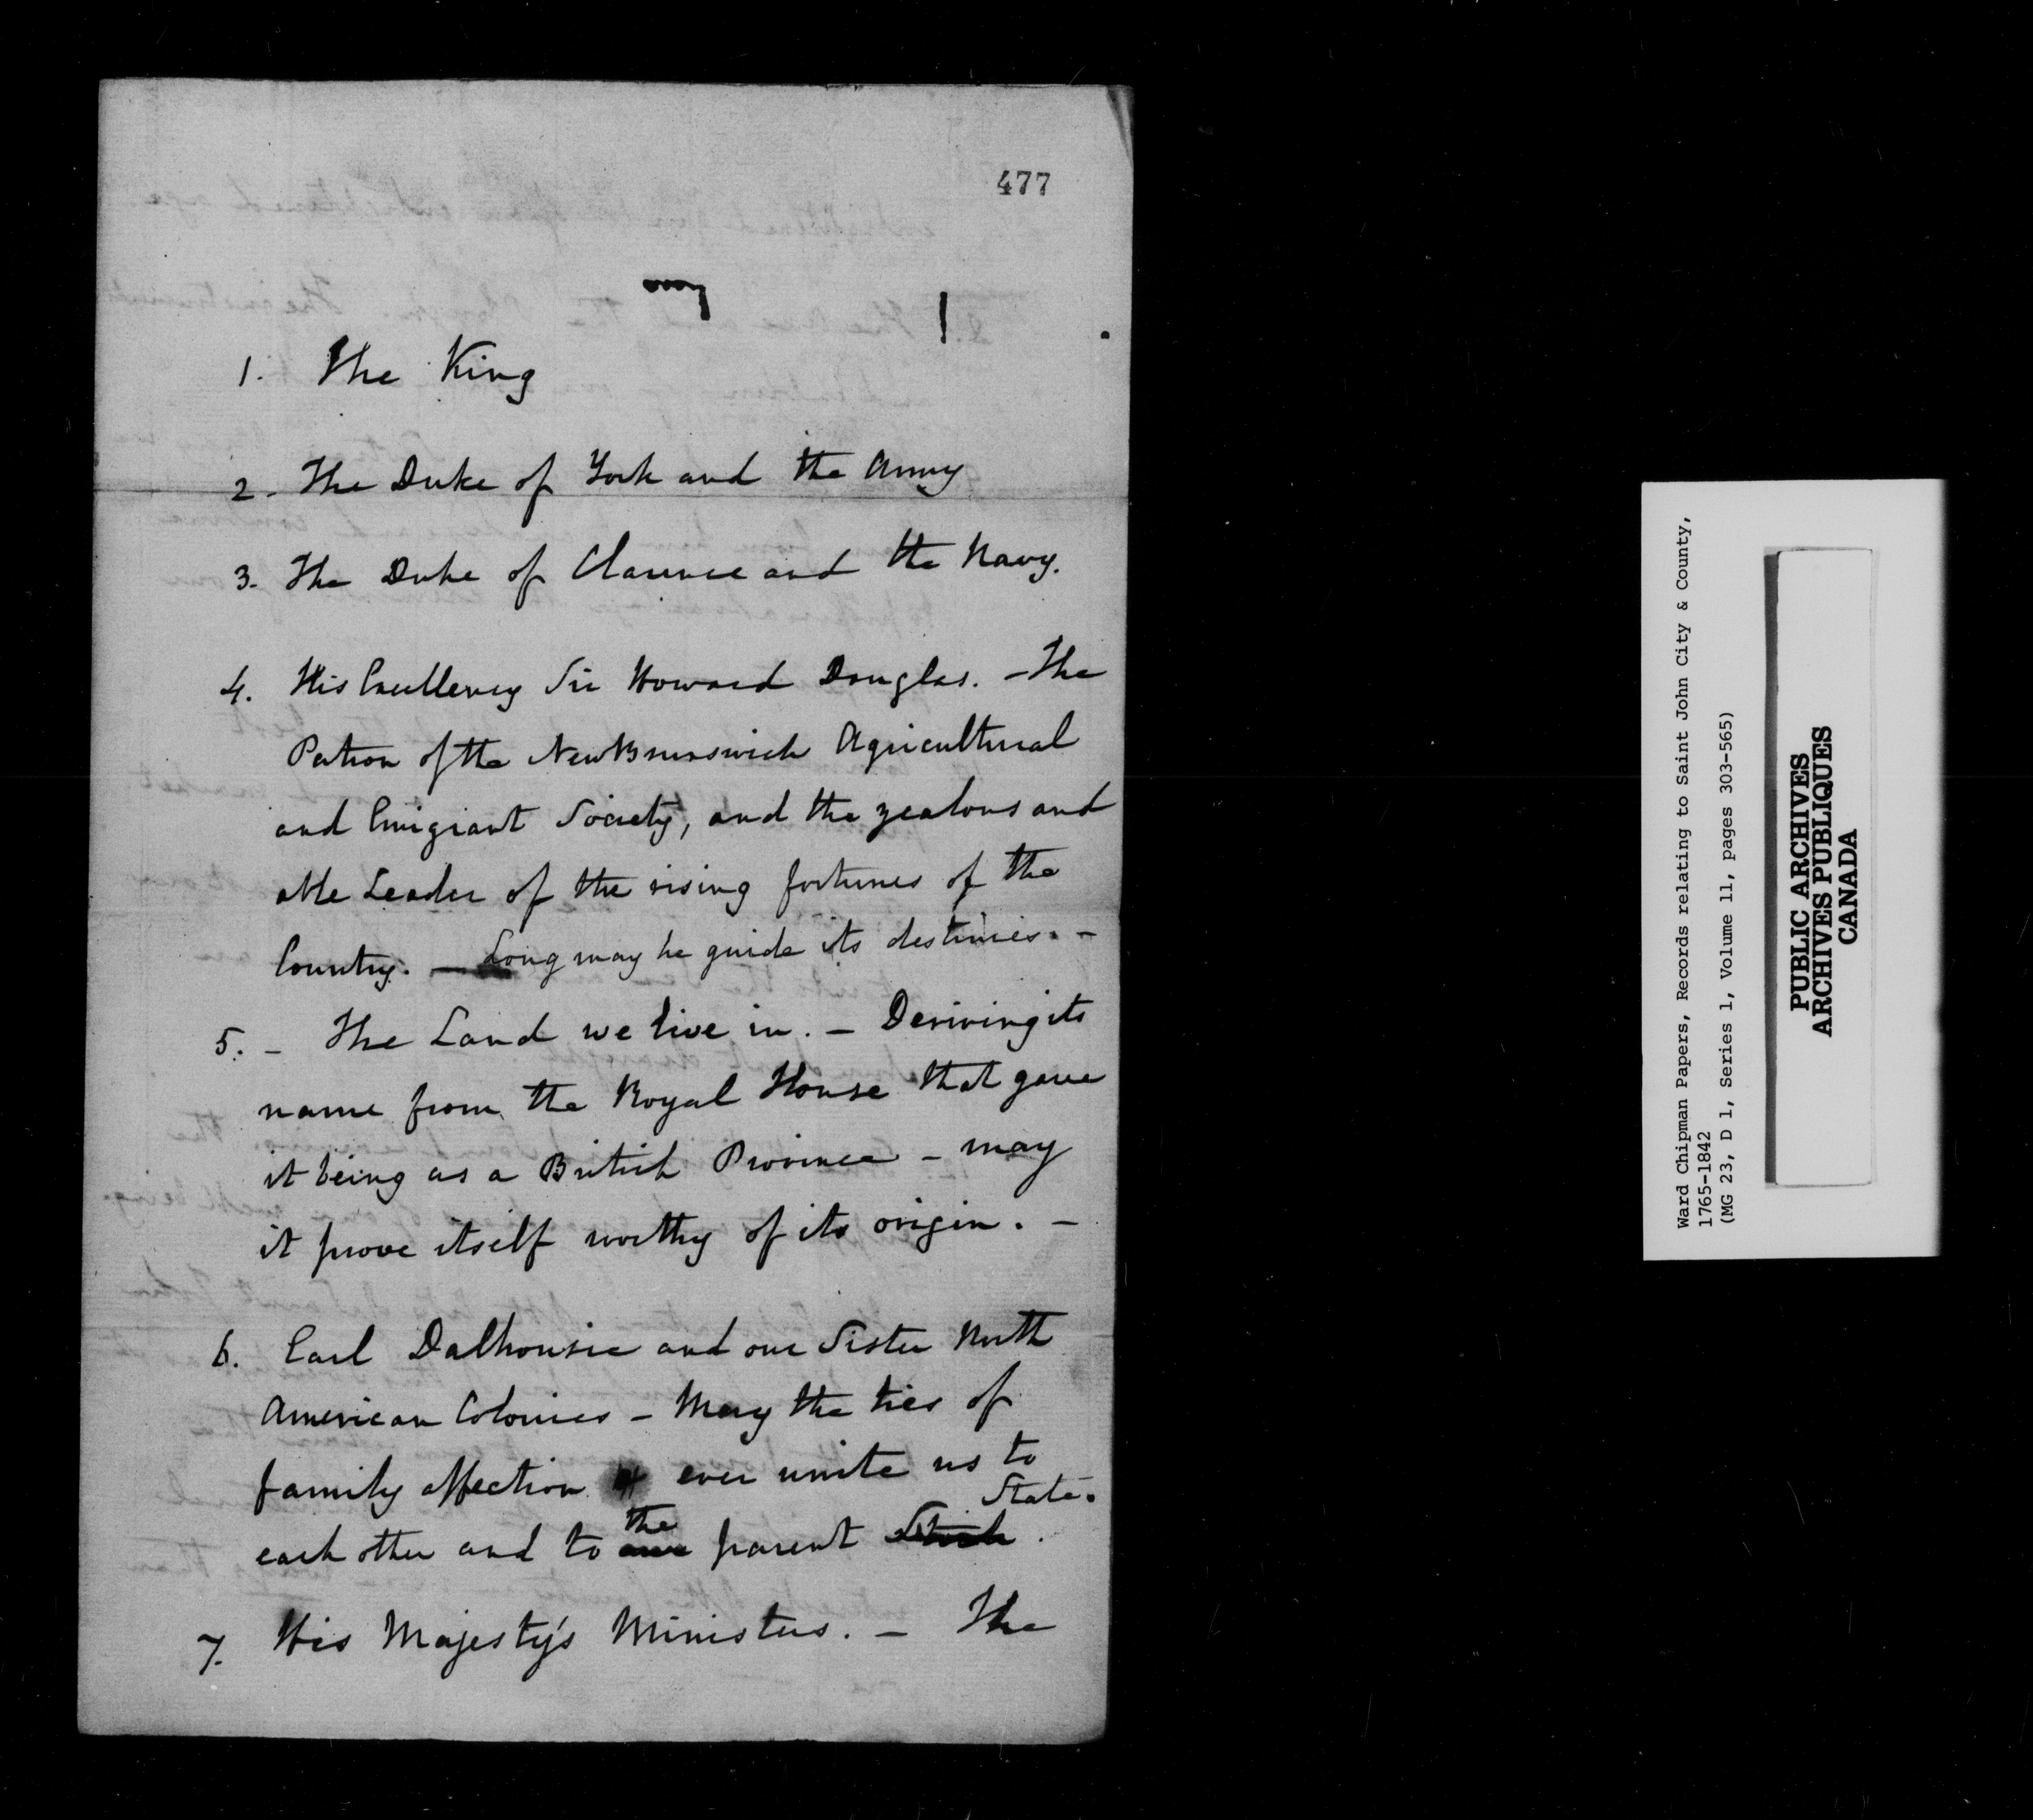 477
1. The King
2. The Duke of York and the Army
3. The Duke of Clarence and the Navy.
4. His Excellency Sir Howard Douglas. – The
Patron of the New Brunswick Agricultural
and Emigrant Society, and the zealous and
able Leader of the rising fortunes of the
Country. – Long may he guide its destinies. –
5. – The Land we live in. – Deriving its
name from the Royal House that gave
it being as a British Province – may
it prove itself worthy of its origin. –
6. Earl Dalhousie and our Sister North
American Colonies – May the ties of
family affection ever unite us to
State.
each other and to the our parent Stock.
7. His Majesty's Ministers. – The
Ward Chipman Papers, Records relating to Saint John City & County,
1765-1842
(MG 23, D 1, Series 1, Volume 11, pages 303-565)
PUBLIC ARCHIVES
ARCHIVES PUBLIQUES
CANADA